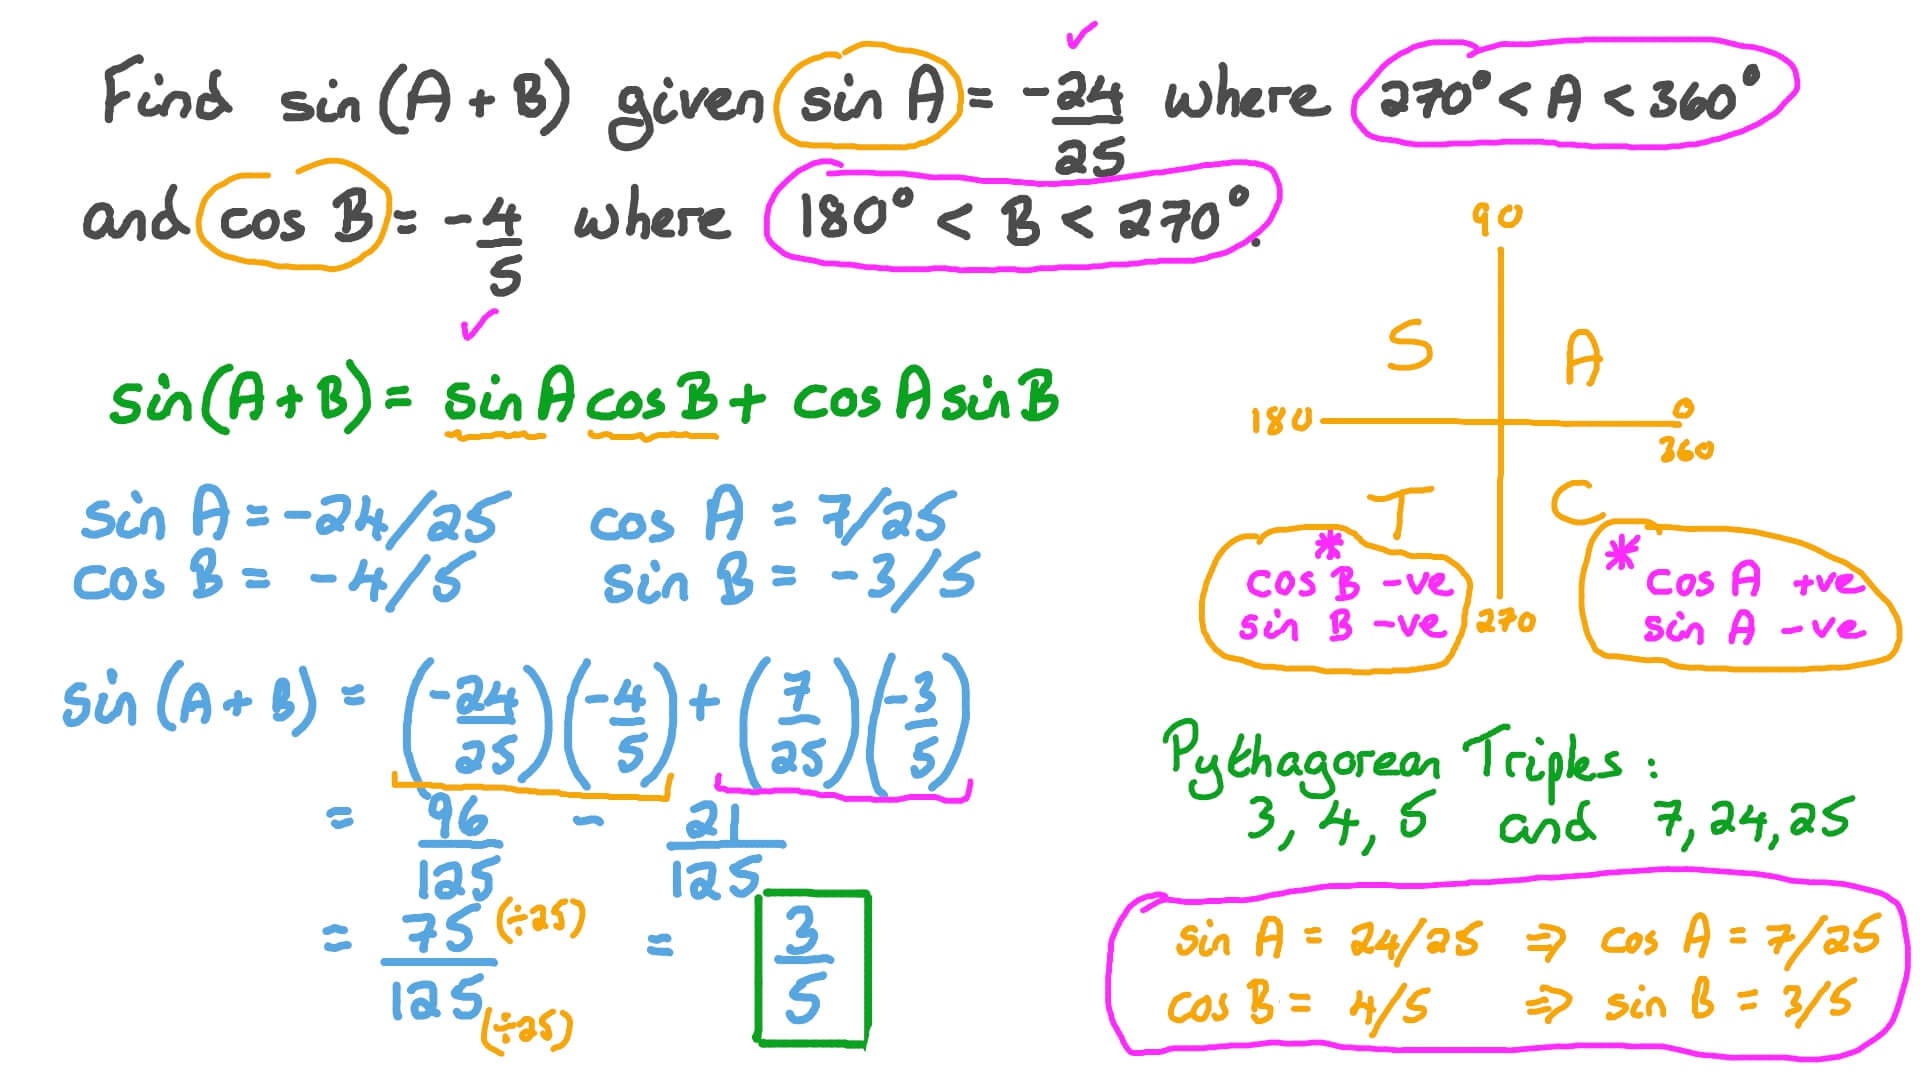 Find sin (A + B) given sin A = -24/25 where 270° < A < 360°
and cos B = -4/5 where 180° < B < 270°.
sin(A + B) = sin A cos B + cos A sin B
sin A = -24/25 cos A = 7/25
cos B = -4/5 sin B = -3/5
sin (A + B) = (-24/25)(-4/5) + (7/25)(-3/5)
= 96/125 - 21/125
= 75 (÷25)/125 (÷25) = 3/5
90
S A
180 0
360
T C
* cos B -ve
sin B -ve
270
* cos A +ve
sin A -ve
Pythagorean Triples:
3, 4, 5 and 7, 24, 25
sin A = 24/25 ⇒ cos A = 7/25
cos B = 4/5 ⇒ sin B = 3/5